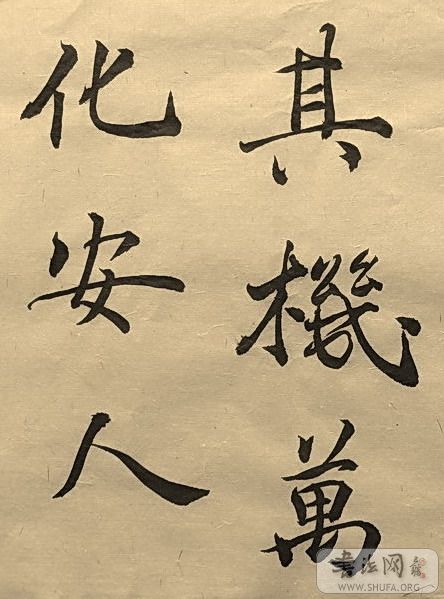 其機萬
化安人
書法网
WWW.SHUFA.ORG